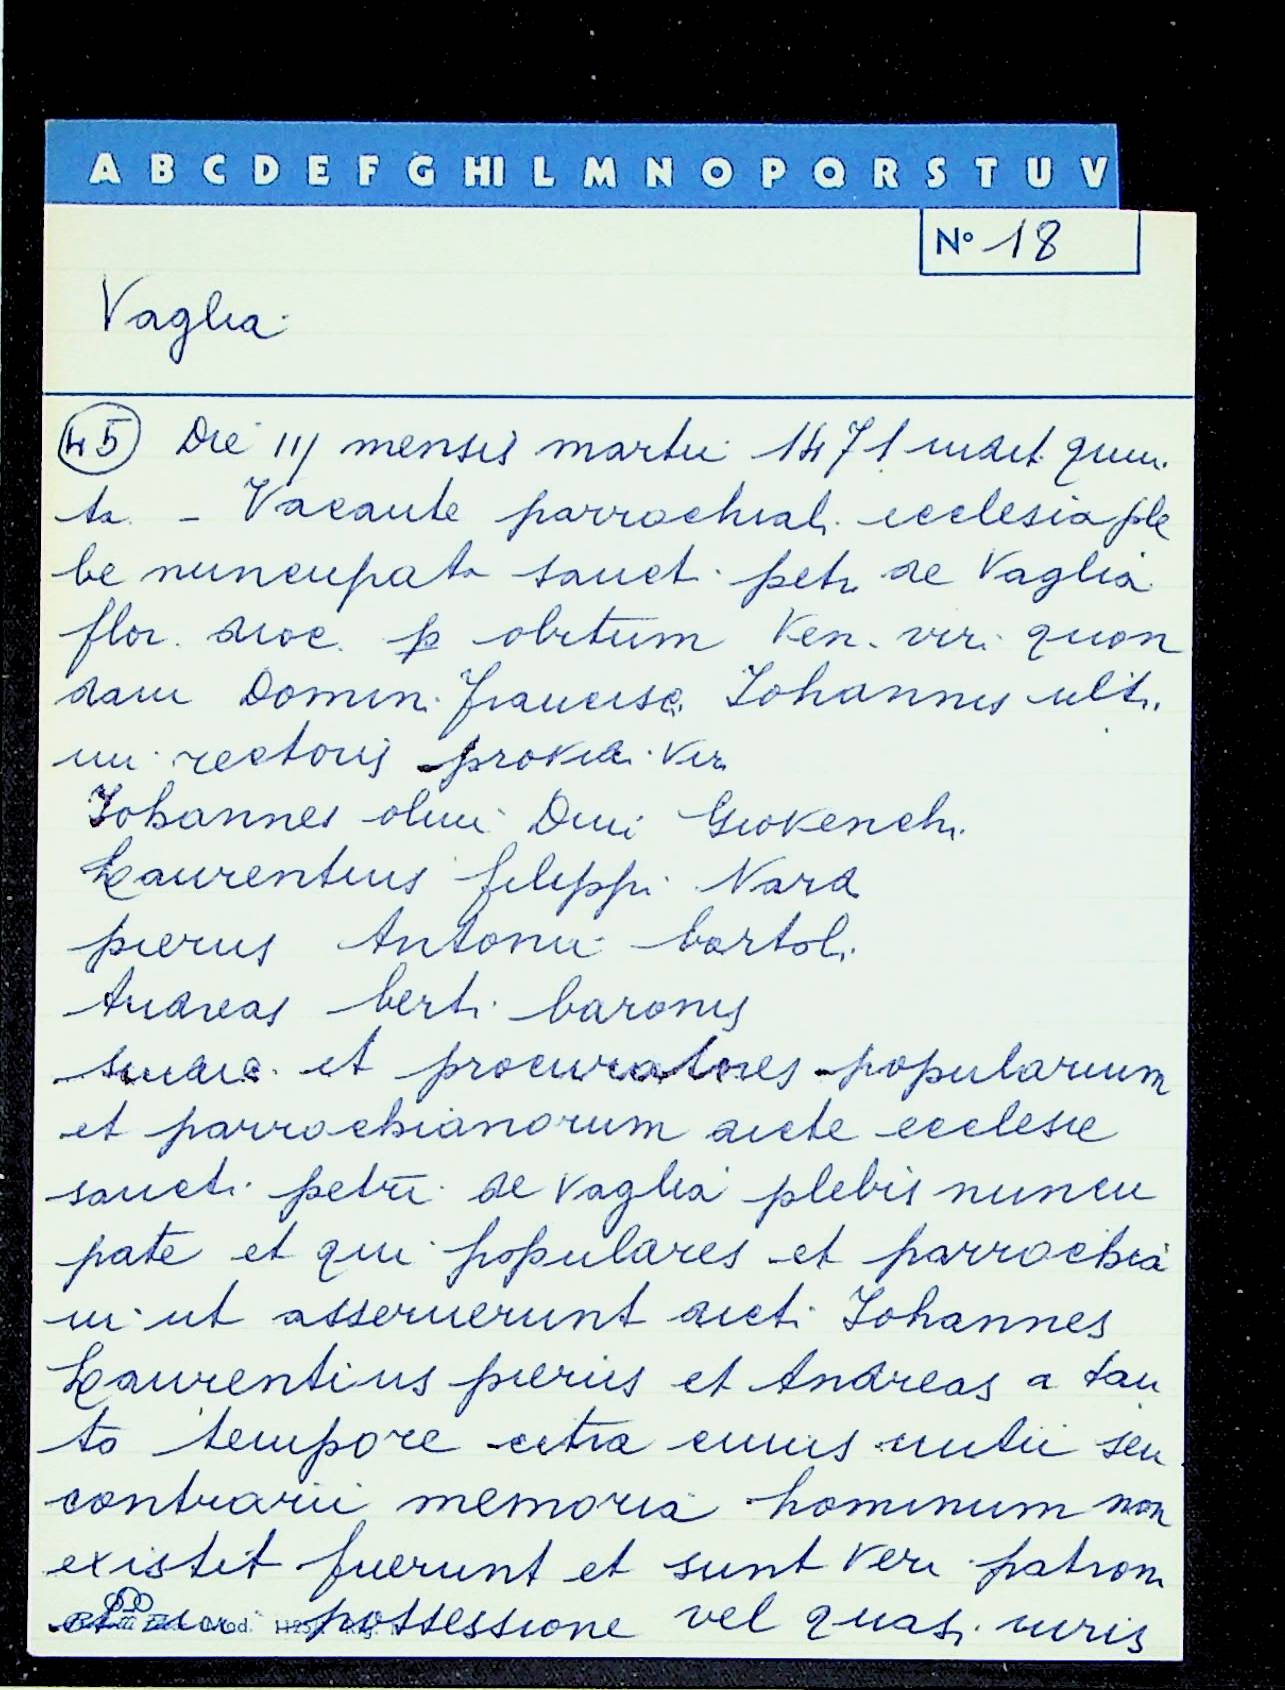 A B C D E F G HI L M N O P Q R S T U V
N° 18
Vaglia
45 Die iij mensis martii 1471 indict. quin
ta - Vacante parrochiali ecclesia ple
be nuncupata sancti petri de Vaglia
flor. dioc. p obitum Ven. viri quon
dam Domini Francisci Iohannis ulti
mi rectoris providi viri
Iohannes olim Dni Giovenchi
Laurentius filippi Nardi
pierus Antonii bartoli
Andreas berti baronis
sindic. et procuratores popularium
et parrochianorum dicte ecclesie
sancti petri de Vaglia plebis nuncu
pate et qui populares et parrochia
ni ut asseruerunt dicti Iohannes
Laurentius pierus et Andreas a tan
to tempore citra cuius initii seu
contrarii memoria hominum non
existit fuerunt et sunt veri patroni
et in possessione vel quasi iuris